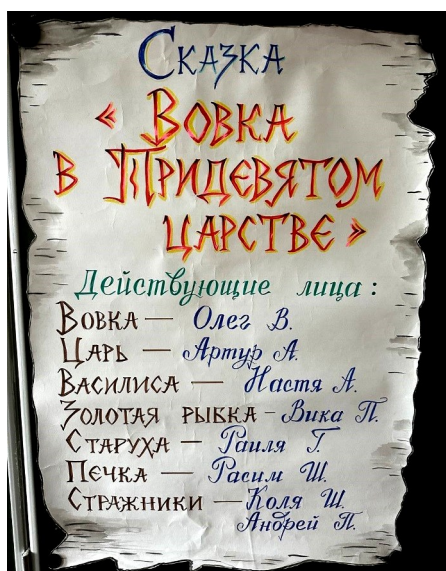 Сказка
« Вовка
в Тридевятом
царстве »
Действующие лица :
Вовка — Олег В.
Царь — Артур А.
Василиса — Настя А.
Золотая рыбка - Вика П.
Старуха — Раиля Г.
Печка — Расим Ш.
Стражники — Коля Ш.
Андрей П.